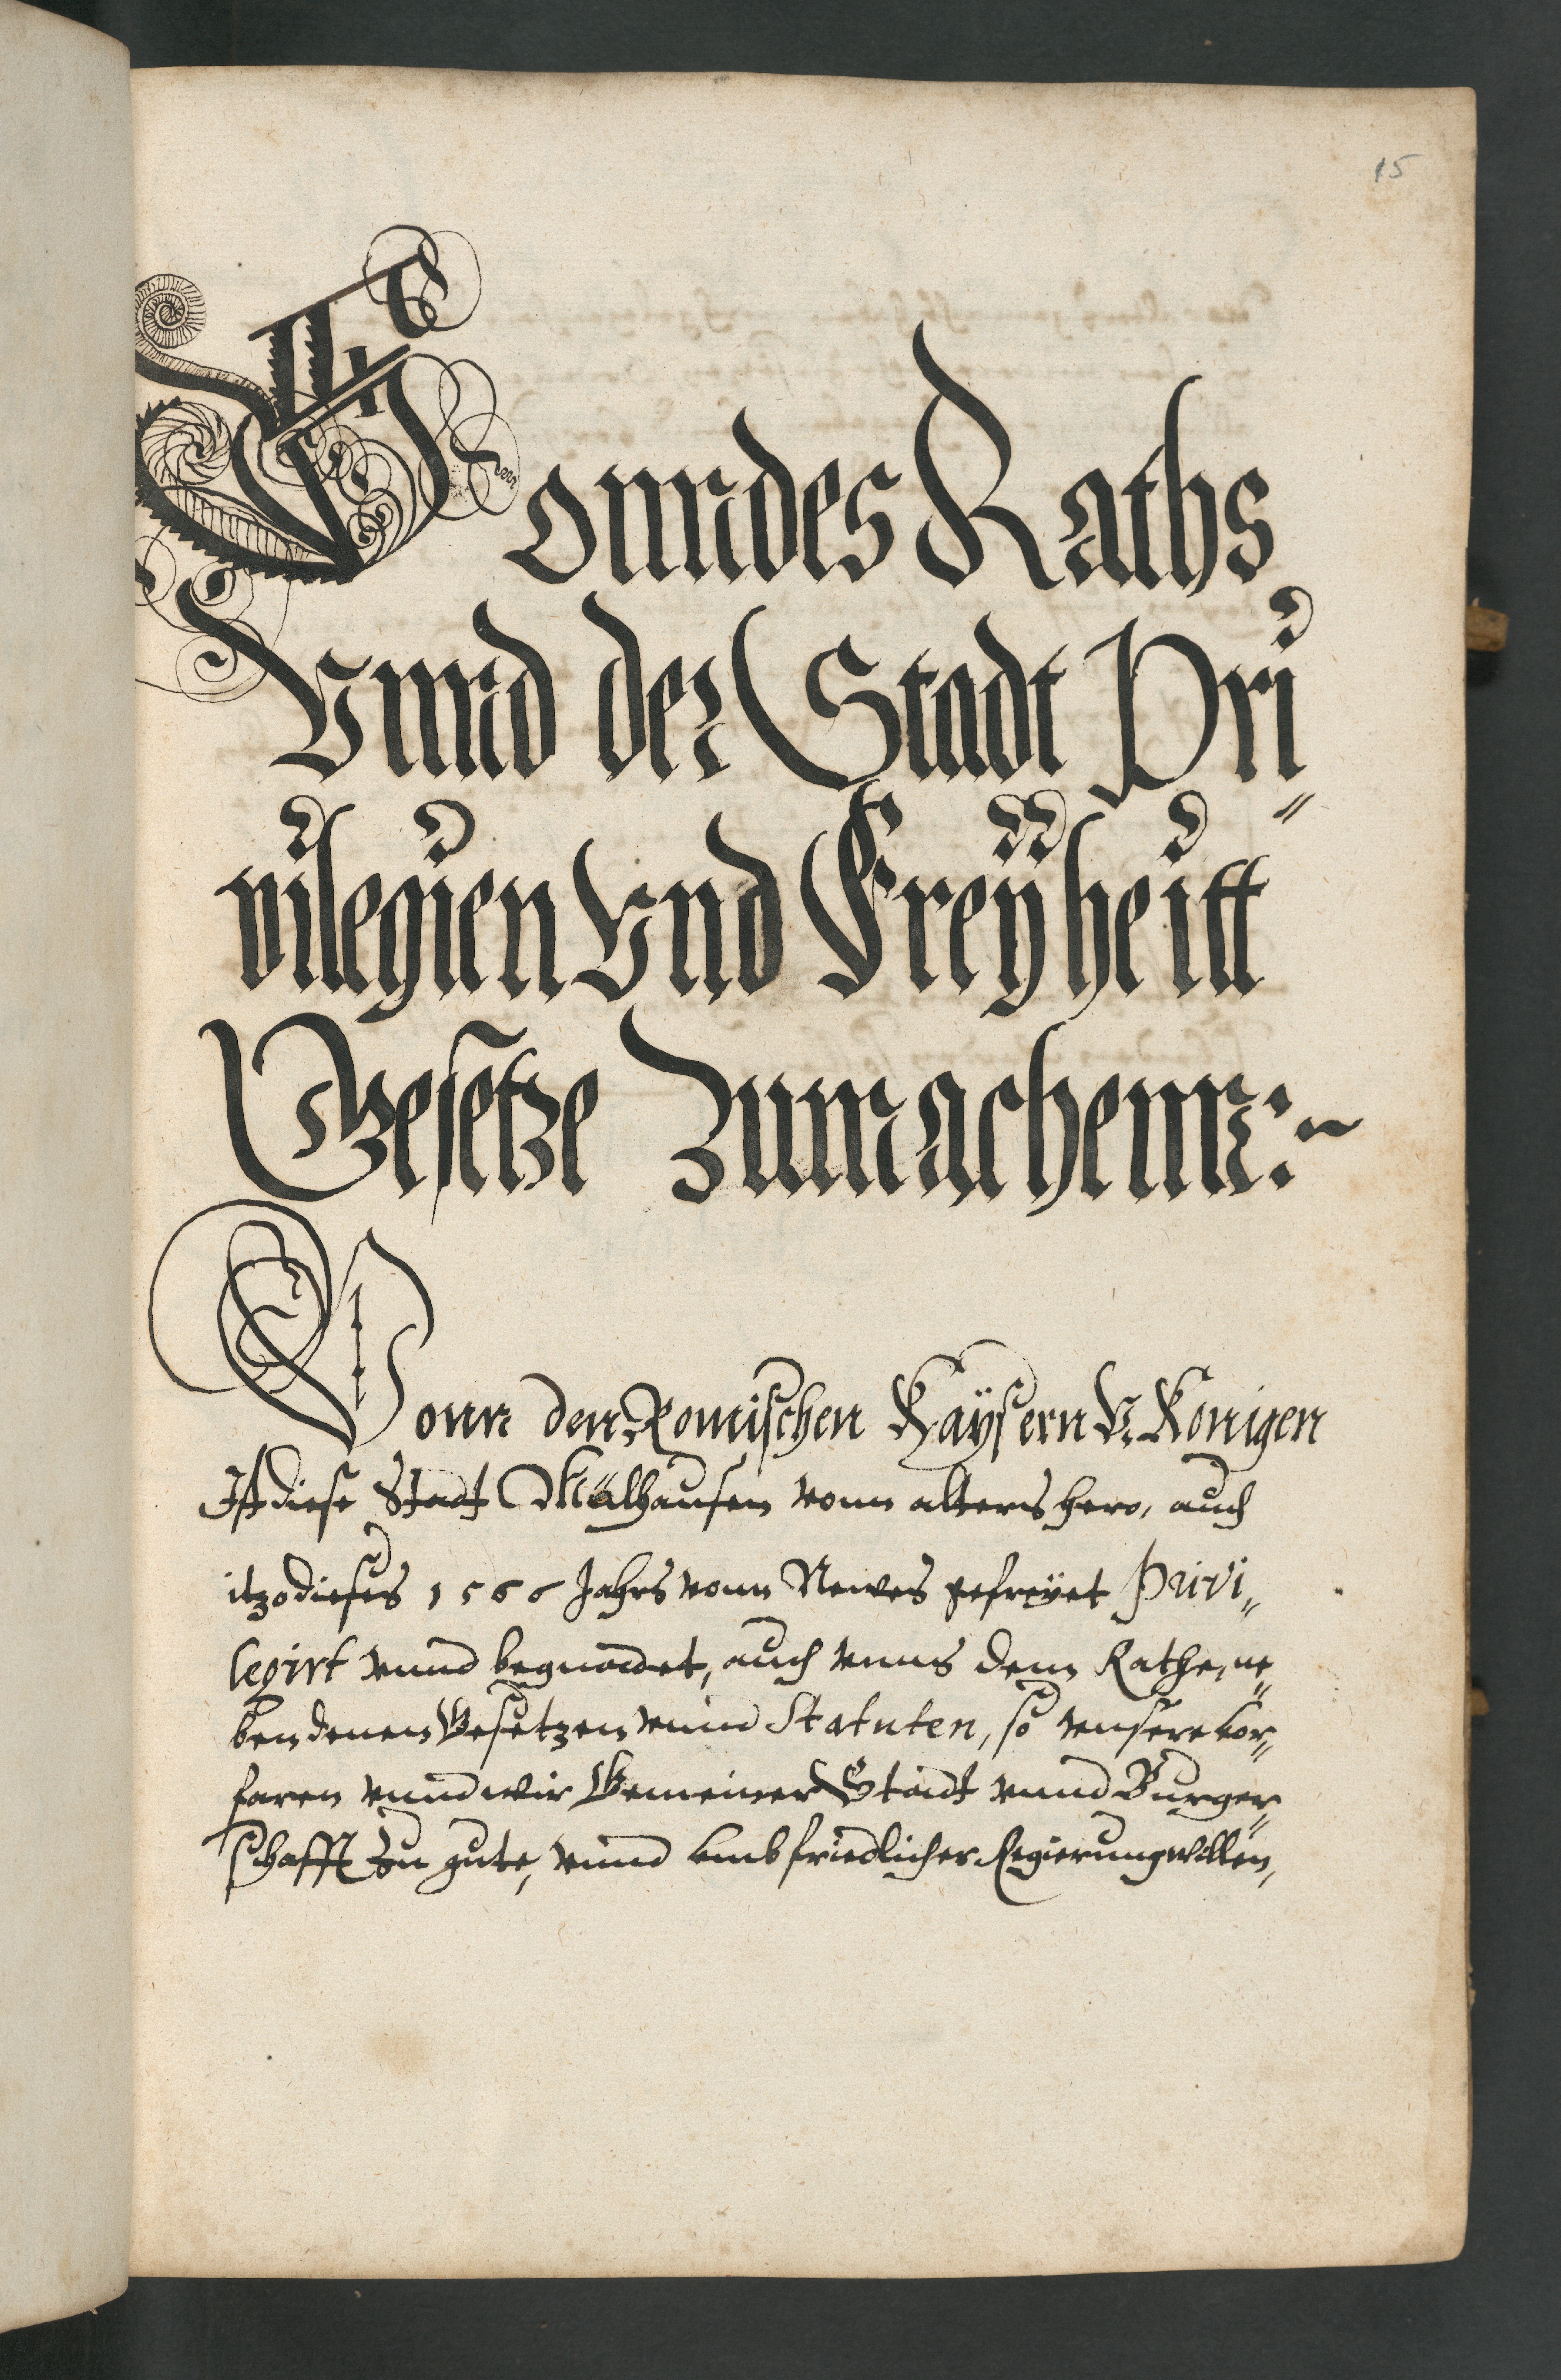 15
Vonn des Raths
Vnnd der Stadt Pri„
uilegien Vnd Freÿheitt
Gesetze Zumachenn:~
Vonn den Romischen Kaÿsern V. Königen
Ist diese Stadt Mülhausen vonn alters hero, auch
itzo dieses 1566 Jahrs vonn Newes gefreÿet Privi„
legirt vnnd begnadet, auch vnns dem Rathe, ne„
ben denen Gesetzen vnnd Statuten, so vnsere vor„
faren vnnd wir Gemeiner Stadt vnnd Burger„
schafft zu gute, vnnd vmb friedlicher Regierung willen,